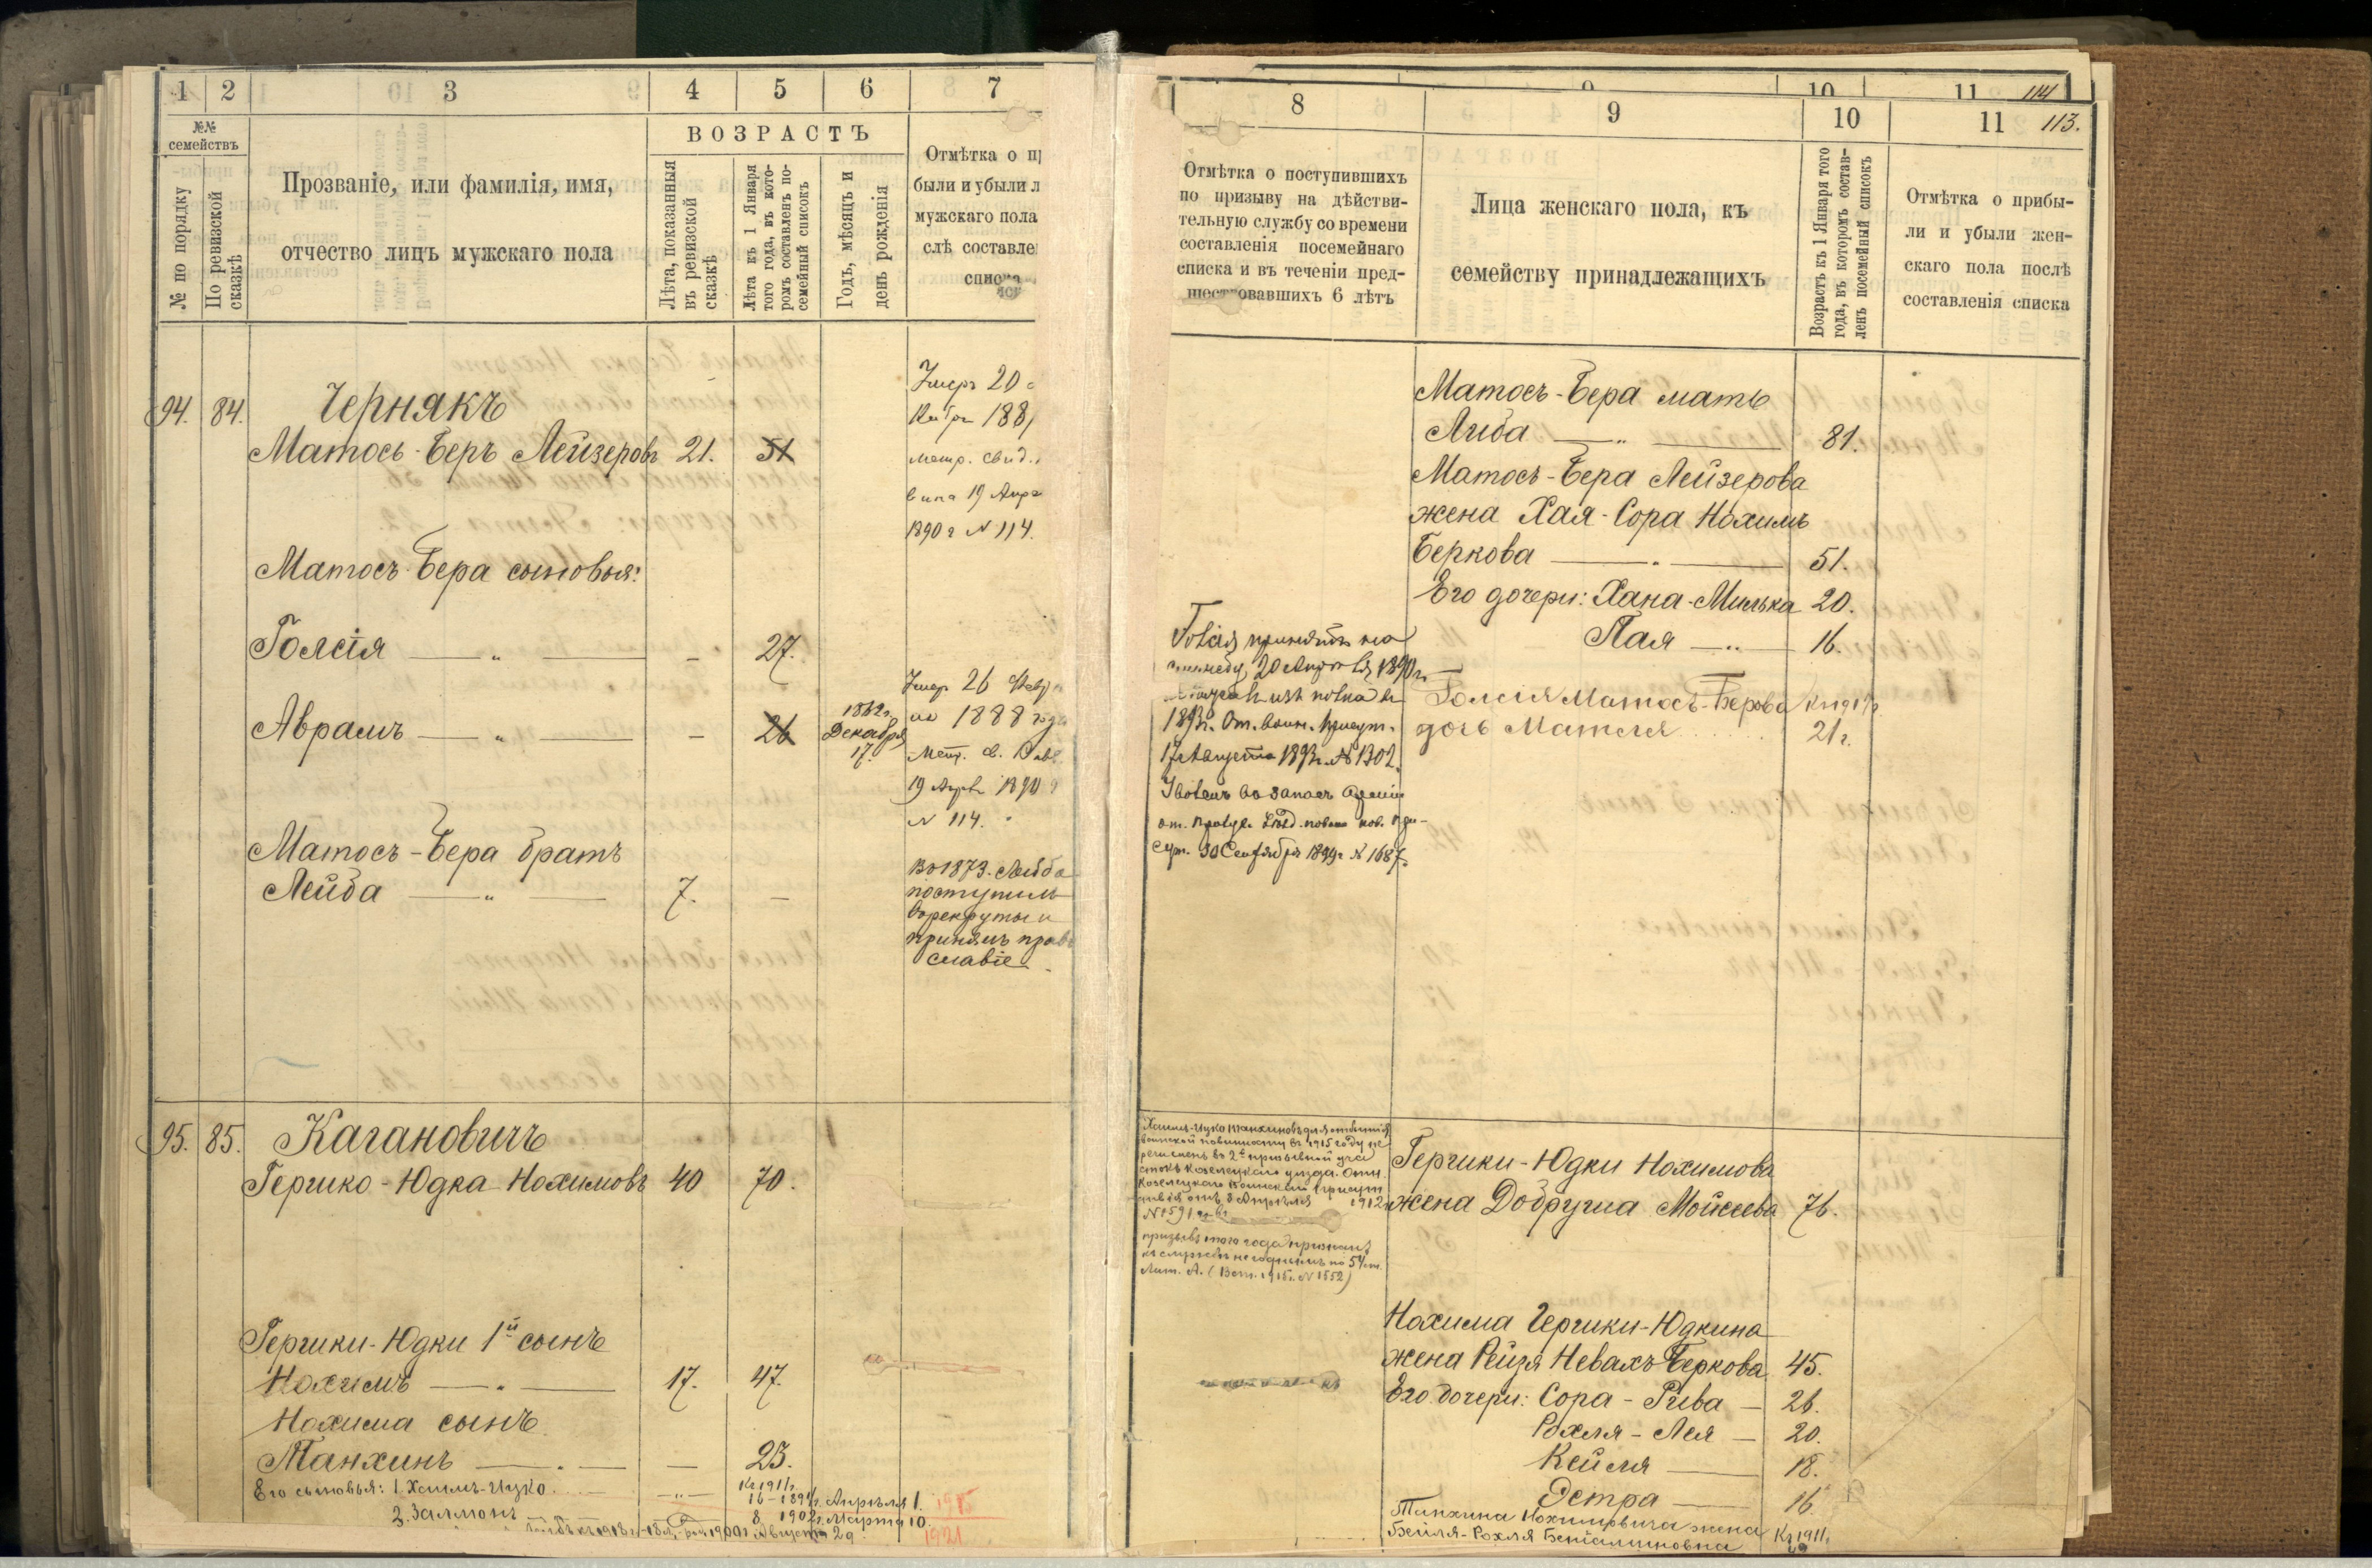 1 2 3 4 5 6 7
№№ семействъ
№ по порядку
По ревизской сказкѣ
Прозваніе, или фамилія, имя,
отчество лицъ мужскаго пола
ВОЗРАСТЪ
Лѣта, показанныя
въ ревизской
сказкѣ
Лѣта къ 1 Января
того года, въ кото-
ромъ составленъ по-
семейный списокъ
Годъ, мѣсяцъ и
день рожденія
Отмѣтка о п
были и убыли л
мужскаго пола
слѣ составле
списка
94. 84. Чернякъ
Матось-Беръ Лейзеровъ 21. 51
Умеръ 20
188
метр. свид.
19 Апр
1890 г N 114.
Матось-Бера сыновья:
Голсія — „ — - 27.
Аврамъ — „ — - 26
1862 г.
Декабря
17.
Умер 26 Февр
1888 года
Мет. св.
19 Апр 1890
N 114.
Матось-Бера братъ
Лейба — „ — 7. -
Въ 1873. Лейба
поступилъ
въ рекруты и
принялъ право
славіе
95. 85. Кагановичъ
Гершко-Юдка Нохимовъ 40 70.
Гершки-Юдки 1й сынъ
Нохимъ — „ — 17. 47.
Нохима сынъ
Танхинъ — „ — - 23.
Его сыновья: 1. Хаимъ-Ицко — „ —
Къ 1911 г.
16 - 1894 г. Апрѣля 1. 1915
2. Залмонъ 8 1902 г. Марта 10.
1900 г. Августа 29 1921
9 10 11 114
8 9 10 11 113.
Отмѣтка о поступившихъ
по призыву на дѣйстви-
тельную службу со времени
составленія посемейнаго
списка и въ теченіи пред-
шествовавшихъ 6 лѣтъ
Лица женскаго пола, къ
семейству принадлежащихъ
Возрастъ къ 1 Января того
года, въ которомъ состав-
ленъ посемейный списокъ
Отмѣтка о прибы-
ли и убыли жен-
скаго пола послѣ
составленія списка
Матось-Бера мать
Либа — „ — 81.
Матось-Бера Лейзерова
жена Хая-Сора Нохимъ
Беркова — „ — 51.
Его дочери: Хана-Милька 20.
Пая — „ — 16.
Голсія Матось-Берова
дочь Матля 21 г.
принятъ на
20 1890 г.
изъ полка въ
1893 г. От. воин. присут.
17 Августа 1893 г. № 1302.
Уволенъ въ запасъ арміи
от.
30 Сентября 1894 г. № 1687.
Хаимъ-Ицко Танхиновъ для отбытія
воинской повинности въ 1915 году пе
речисленъ въ 2й призывной уча
стокъ Козелецкаго уѣзда. Отн.
Козелецкаго Воинскаго Присут
ствія отъ 8 Апрѣля 1912 г.
N 1591
призывъ того года признанъ
къ службѣ негоднымъ по 54 ст.
Лит. А. (1915 г. N 1552)
Гершки-Юдки Нохимова
жена Добруша Мойсеева 76.
Нохима Гершки-Юдкина
жена Рейзя Невахъ Беркова 45.
Его дочери: Сора-Рива — 26.
Рохля-Лея — 20.
Кейля — 18.
Эстра — 16.
Танхина Нохимовича жена
Бейля-Рохля Къ 1911 г.